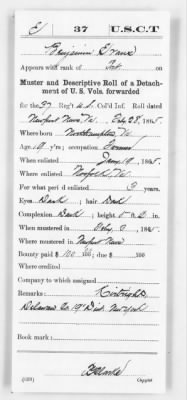 E | 37 | U.S.C.T
Benjamin Evans
Appears with rank of Pvt. on
Muster and Descriptive Roll of a Detach-
ment of U. S. Vols. forwarded
for the 37 Reg't U.S. Col'd Inf. Roll dated
Newport News, Va. Feb 28, 1865.
Where born Northampton, Va
Age 19 y'rs; occupation Farmer
When enlisted Jany 19, 1865.
Where enlisted Norfolk, Va.
For what period enlisted 3 years.
Eyes Dark; hair Dark
Complexion Dark; height 5 ft. in.
When mustered in Feby, 1865.
Where mustered in Newport News
Bounty paid $ 100; due $ 100
Where credited
Company to which assigned
Remarks:
Delaware Co. 19" Dist. New York
Book mark:
Copyist.